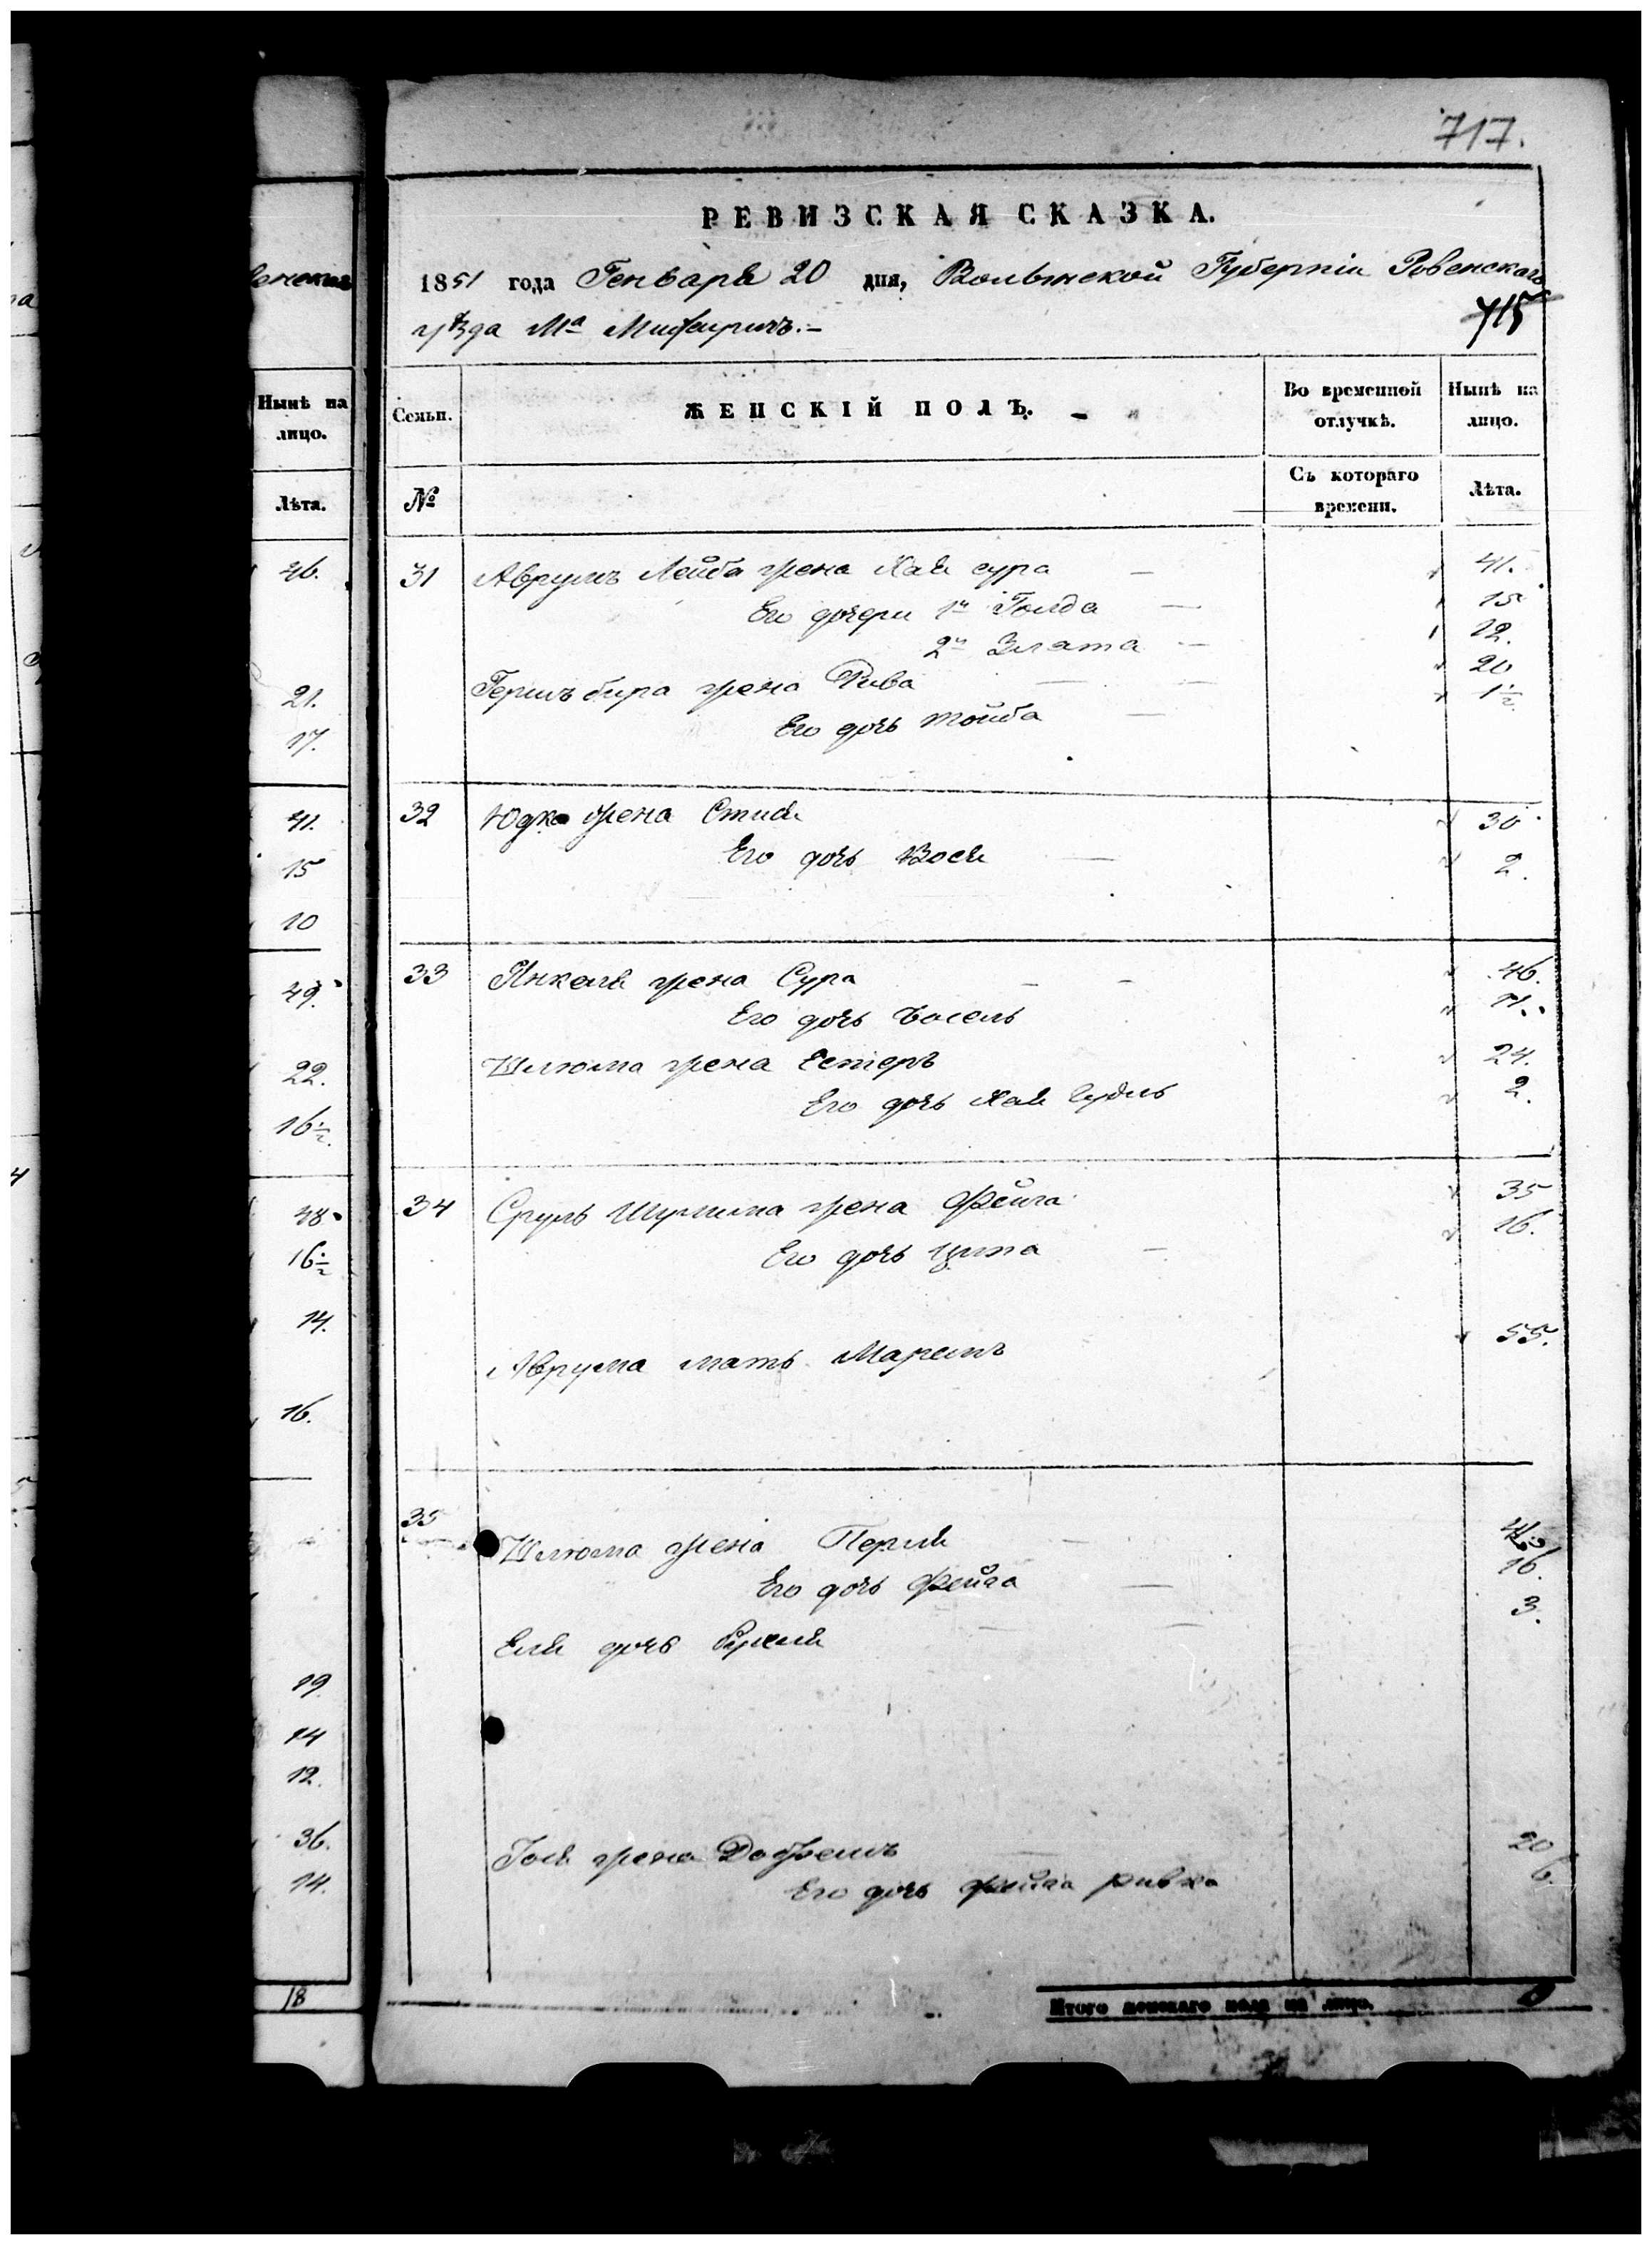 717.
РЕВИЗСКАЯ СКАЗКА.
1851 года Генваря 20 дня, Волынской Губерніи Ровенскаго
уѣзда Мª Межиричъ.-
715
Нынѣ на лицо.
Лѣта.
46.
21.
17.
41.
15
10
49.
22.
16½
48.
16½
14.
16.
19
14
12.
36.
14.
18
Семьи. ЖЕНСКІЙ ПОЛЪ. Во временной отлучкѣ. Нынѣ на лицо.
№ Съ котораго времени. Лѣта.
31 Аврумъ Лейба жена Хая сура — 41.
Его дочери 1я Голда — 15
2я Злата — 12.
Гершъ бера жена Рива — 20
Его дочь Тойба — 1½
32 Юдка жена Стися 30
Его дочь Бася — 2.
33 Янкеля жена Сура — 46.
Его дочь 11.
Шлиома жена Естеръ 24.
Его дочь Хая Гудль 2.
34 Сруль Шулима жена Фейга 35
Его дочь Ципа — 16.
Аврума мать Маремъ 55.
35 Шлиома жена Перля —
Его дочь Фейга — 16.
Еля дочь 3.
Іося жена Добришъ 20
Его дочь Фейга ривка 6
Итого женскаго пола на лицо.